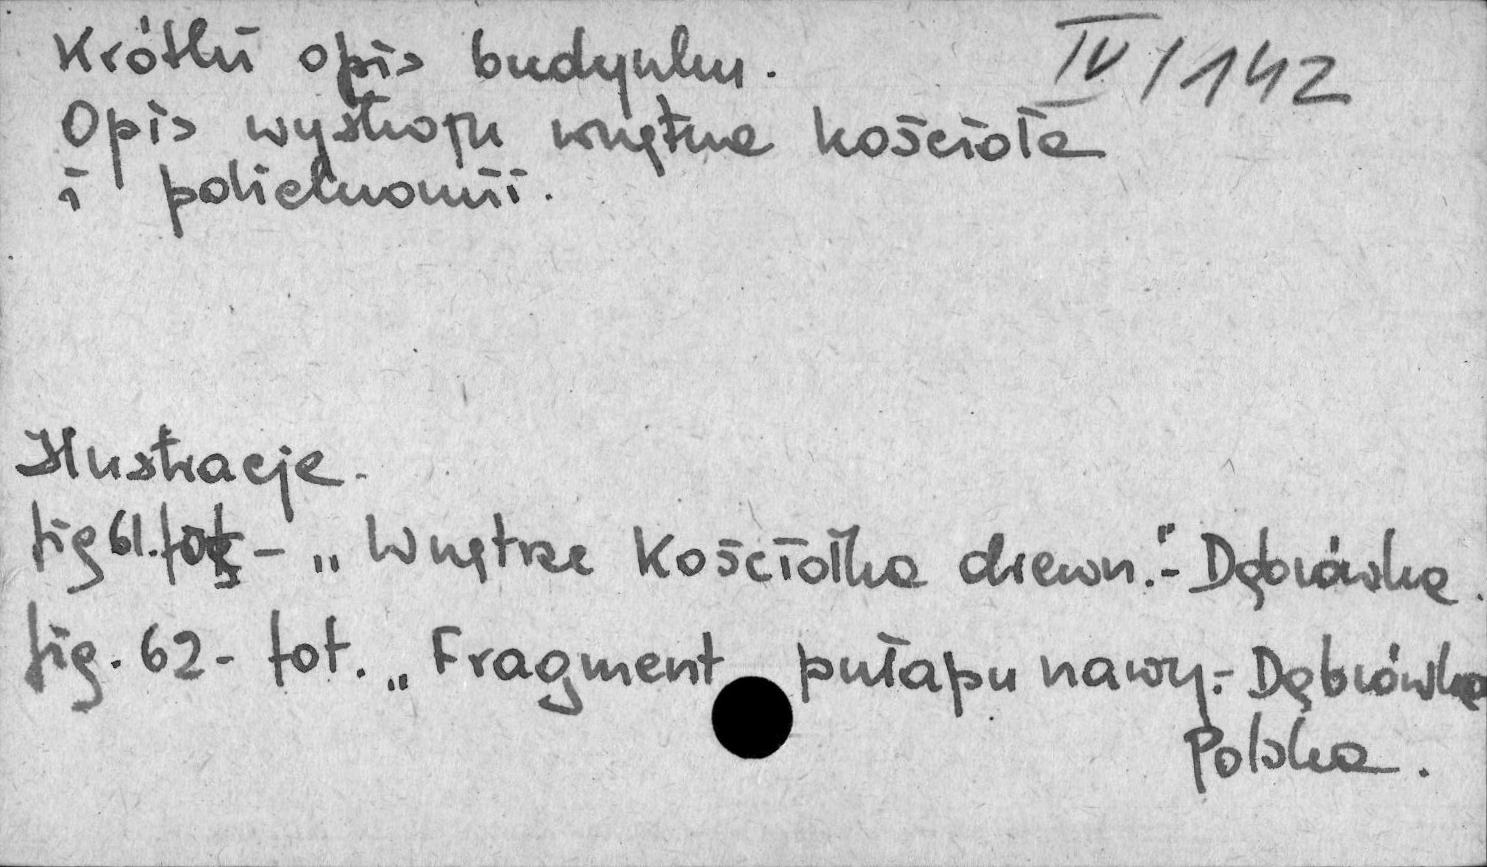 Krótki opis budynku.
IV/142
Opis wystroju wnętrza kościoła
i polichromii.
Ilustracje.
fig 61. fot – „Wnętrze Kościółka drewn." - Dąbrówka.
fig. 62 - fot. „Fragment pułapu nawy. - Dąbrówka
Polska.